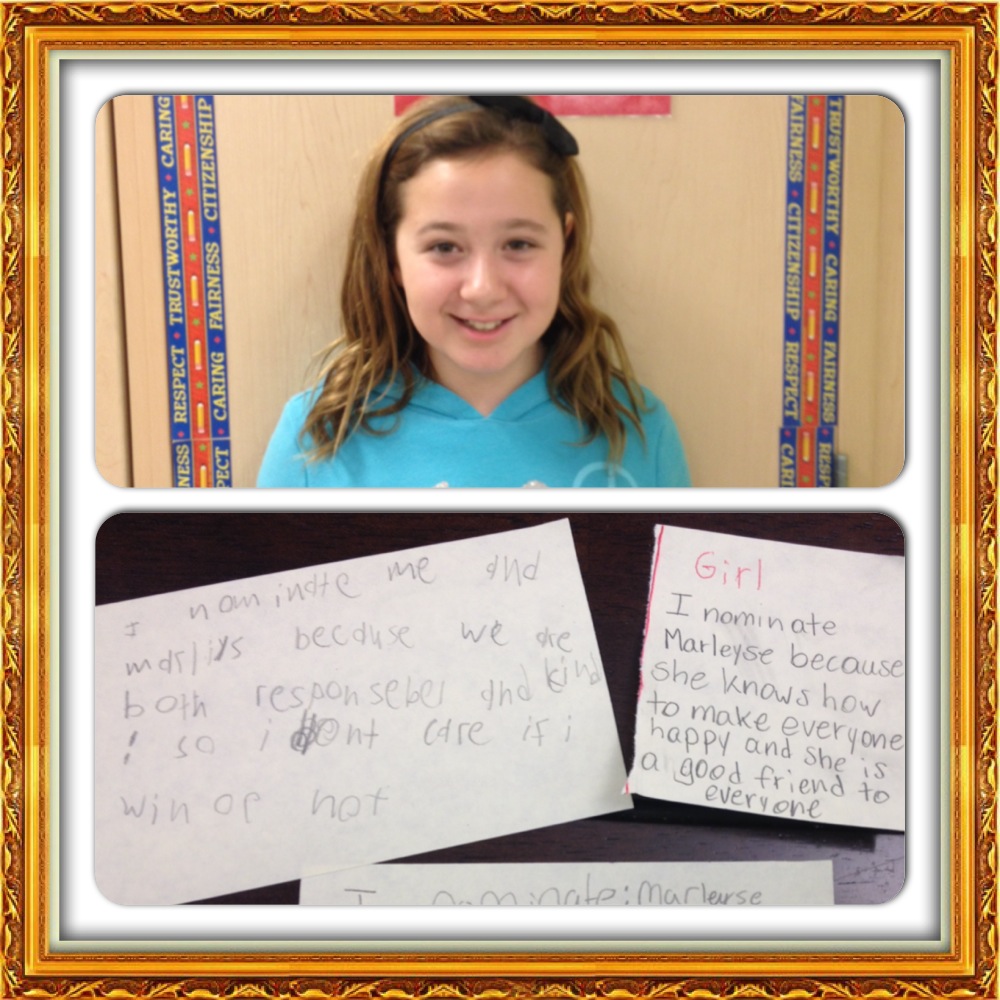 RESPECT • TRUSTWORTHY • CARING
CARING • FAIRNESS • CITIZENSHIP
NESS
PECT
FAIRNESS • CITIZENSHIP • RESPECT
TRUSTWORTHY • CARING • FAIRNESS
CARI
RESP
I nominate me and
marliys because we are
both responsebel and kind
! so i dont care if i
win or not
Girl
I nominate
Marleyse because
she knows how
to make everyone
happy and she is
a good friend to
everyone
I nominate: Marleyse